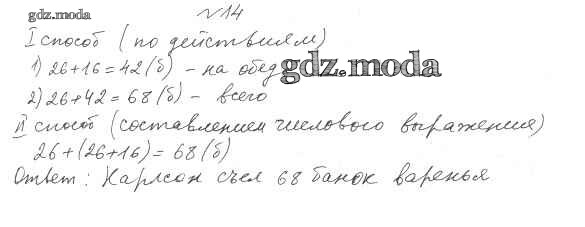 gdz.moda
№14
I способ (по действиям)
1) 26+16=42 (б) – на обед
gdz.moda
2) 26+42=68 (б) – всего
II способ (составлением числового выражения)
26+(26+16)=68 (б)
Ответ: Карлсон съел 68 банок варенья